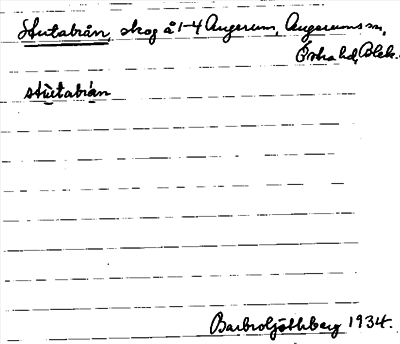 Stutabrån, skog å 1-4 Augerum, Augerums sn,
Östra hd, Blek.
stu̇tabrán
1934.